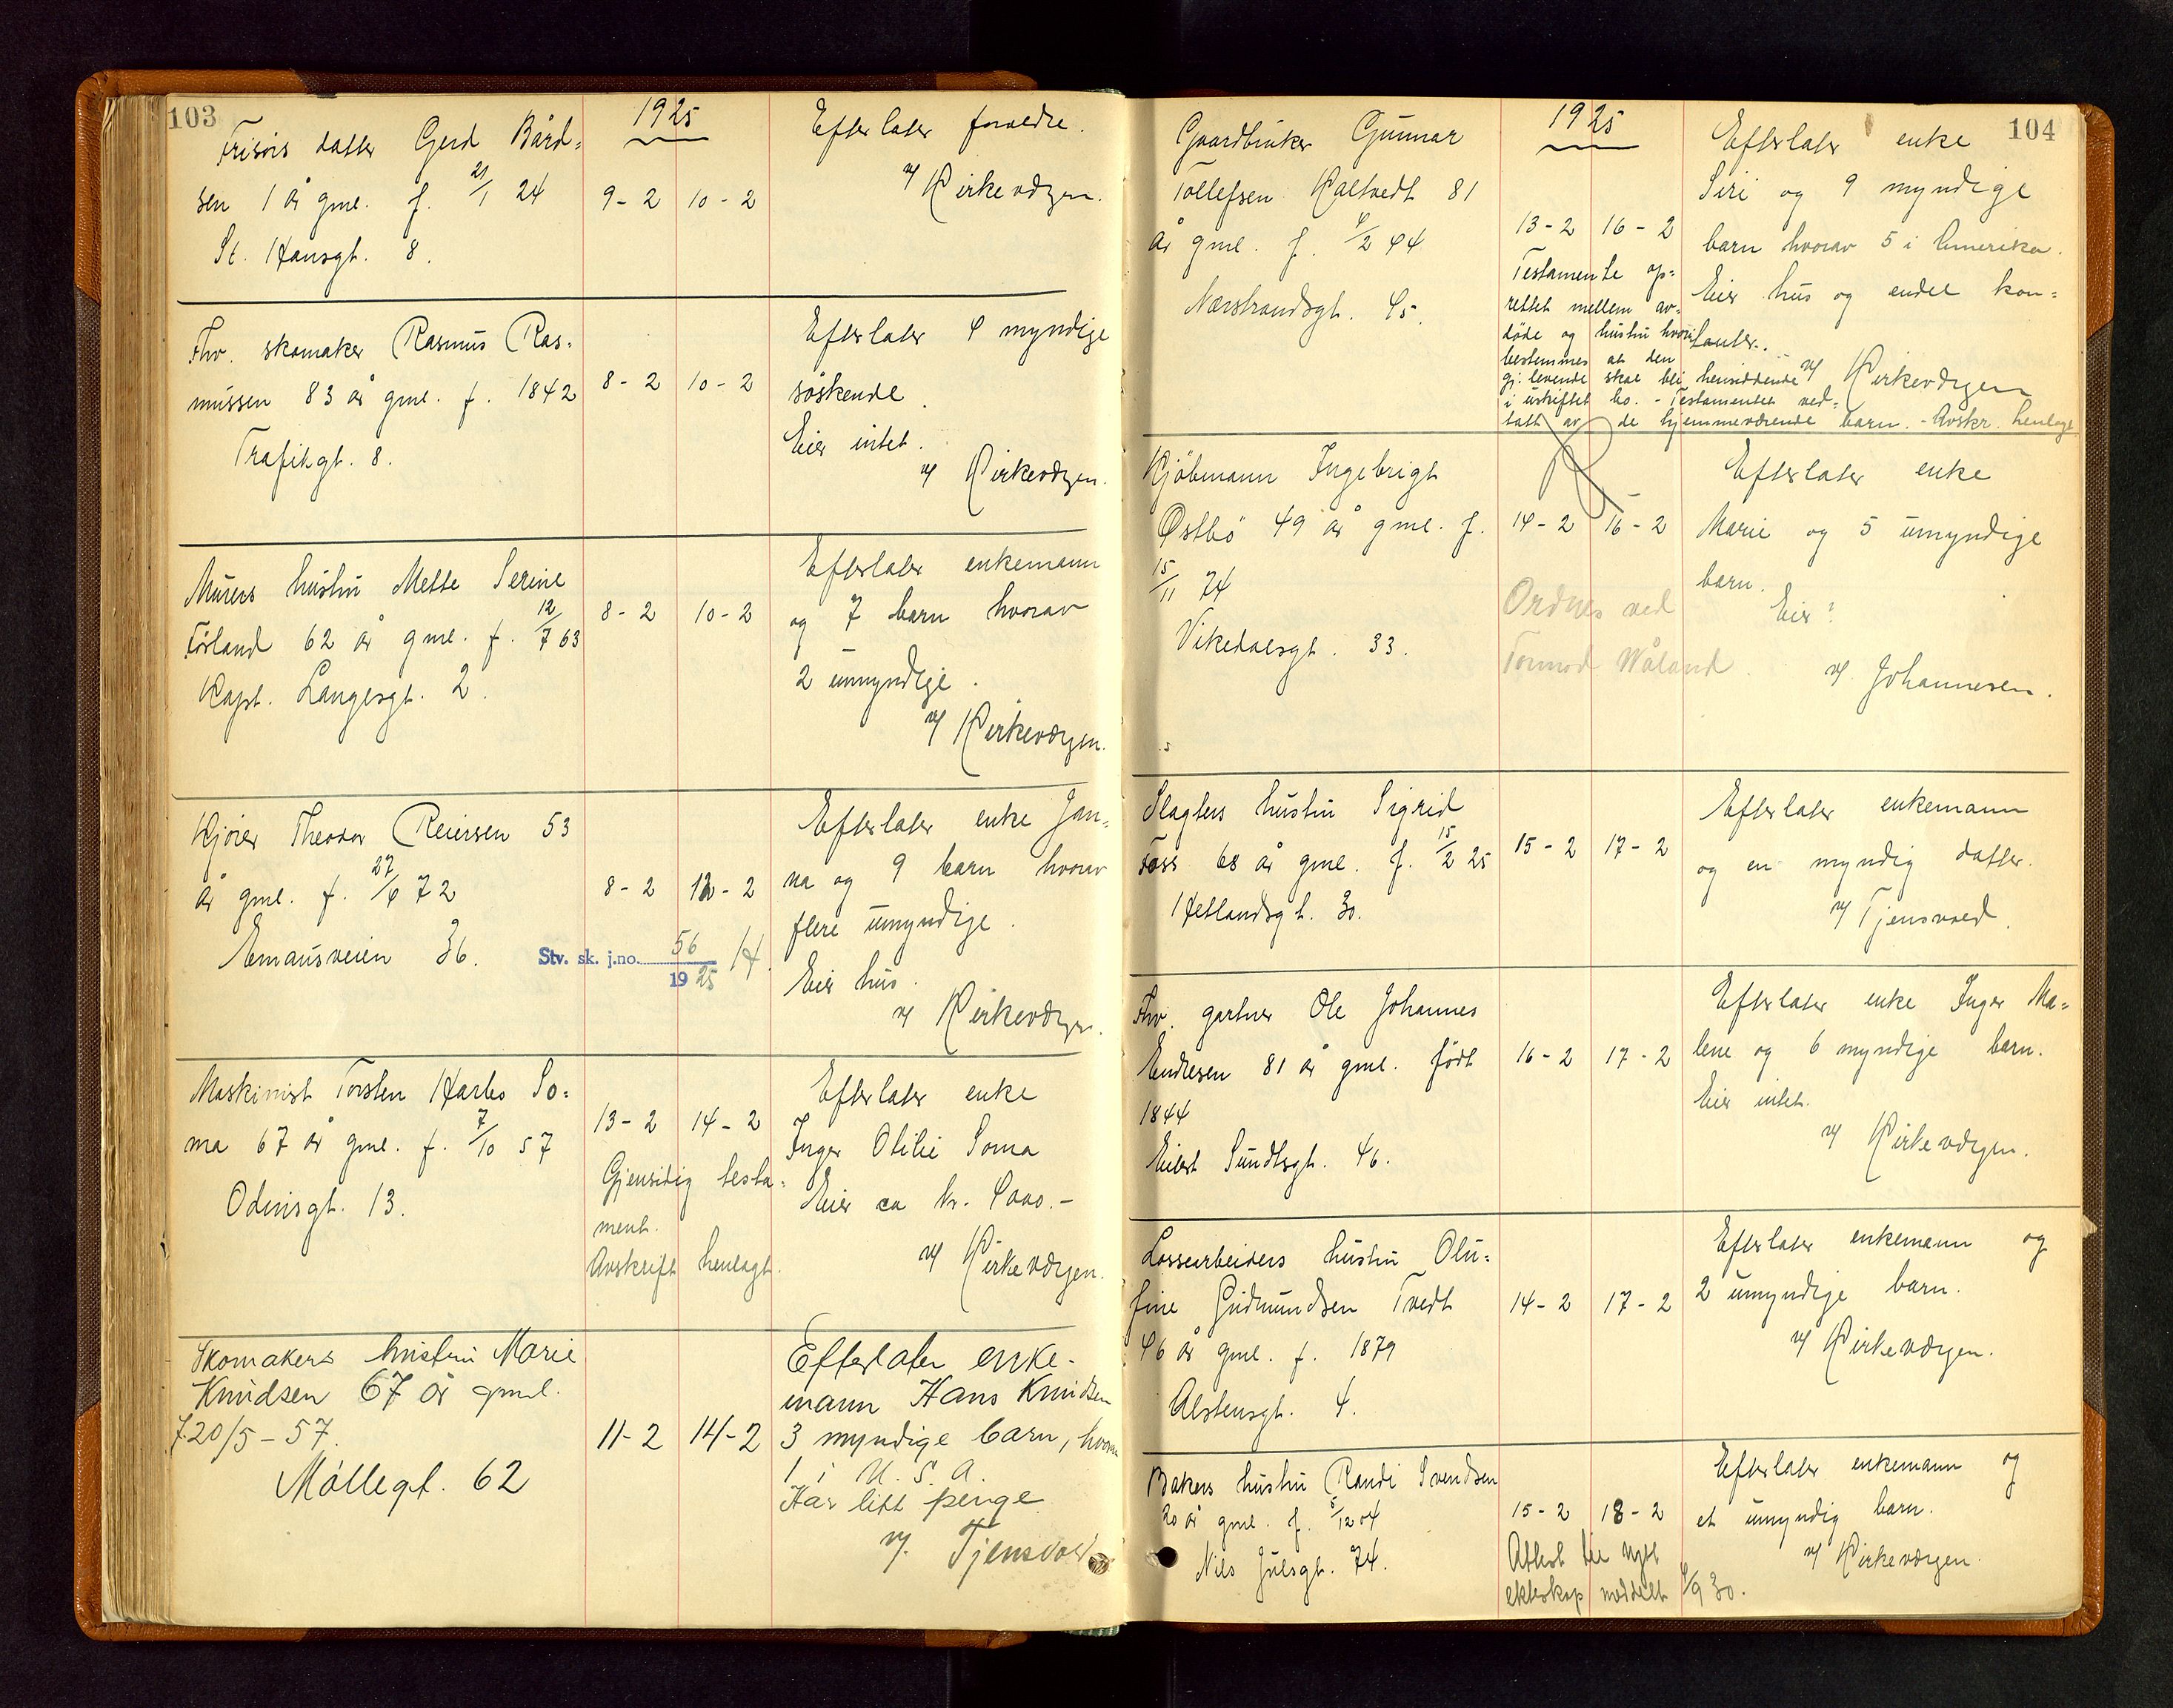 103
1925
Frisörs datter Gerd Bård-
sen 1 år gml. f. 21/1 24
St. Hansgt. 8.
9-2 10-2
Efterlater foreldre.
v/ Kirkevergen.
Fhv. skomaker Rasmus Ras-
mussen 83 år gml. f. 1842
Trafikgt. 8.
8-2 10-2
Efterlater 4 myndige
söskende.
Eier intet.
v/ Kirkevergen.
Murers hustru Mette Serine
Förland 62 år gml. f. 12/7 63
Kapt. Langesgt. 2.
8-2 10-2
Efterlater enkemann
og 7 barn hvorav
2 umyndige.
v/ Kirkevergen.
Kjörer Theodor Reiersen 53
år gml. f. 27/6 72
Emausveien 36.
8-2 12-2
Stv. sk. j.no. 56
1925
Efterlater enke Jan-
na og 9 barn hvorav
flere umyndige.
Eier hus.
v/ Kirkevergen.
Maskinist Torsten Harbo So-
ma 67 år gml. f. 7/10 57
Odinsgt. 13.
13-2 14-2
Gjensidig testa-
ment.
Avskrift henlagt.
Efterlater enke
Inger Otilie Soma
Eier ca kr. 4000.-
v/ Kirkevergen.
Skomakers hustru Marie
Knudsen 67 år gml.
f. 20/5-57.
Möllegt. 62
11-2 14-2
Efterlater enke-
mann Hans Knudsen
3 myndige barn, hvorav
1 i U.S.A.
Har litt penge
v/. Tjensvold
104
1925
Gaardbruker Gunnar
Tollefsen Kaltvedt 81
år gml. f. 4/2 44
Nærstrandsgt. 45.
13-2 16-2
Testamente op-
rettet mellem av-
døde og hustru hvori
bestemmes at den
gj. levende skal bli hensiddende
i uskiftet bo. - Testamentet ved-
tatt av de hjemmeværende barn. - Avskr. henlagt
Efterlater enke
Siri og 9 myndige
barn hvorav 5 i Amerika.
Eier hus og endel kon-
tanter.
v/ Kirkevergen
Kjöbmann Ingebrigt
Østbö 49 år gml. f.
15/11 74
Vikedalsgt. 33.
14-2 16-2
Ordnes ved
Tormod Wåland.
Efterlater enke
Marie og 5 umyndige
barn.
Eier?
v/ Johannesen.
Slagters hustru Sigrid
Foss 68 år gml. f. 15/2 25
Hetlandsgt. 30.
15-2 17-2
Efterlater enkemann
og en myndig datter.
v/ Tjensvold.
Fhv. gartner Ole Johannes
Endresen 81 år gml. födt
1844
Eilert Sundtsgt. 46.
16-2 17-2
Efterlater enke Inger Ma-
lene og 6 myndige barn.
Eier intet.
v/ Kirkevergen.
Lossearbeiders hustru Olu-
fine Gudmundsen Tvedt
46 år gml. f. 1879
Alstensgt. 4.
14-2 17-2
Efterlater enkemann og
2 umyndige barn.
v/ Kirkevergen.
Bakers hustru Randi Svendsen
20 år gml. f. 5/12 04
Nils Juelsgt. 74.
15-2 18-2
Attest til nytt
ekteskap meddelt 4/9 30.
Efterlater enkemann og
et umyndig barn.
v/ Kirkevergen.